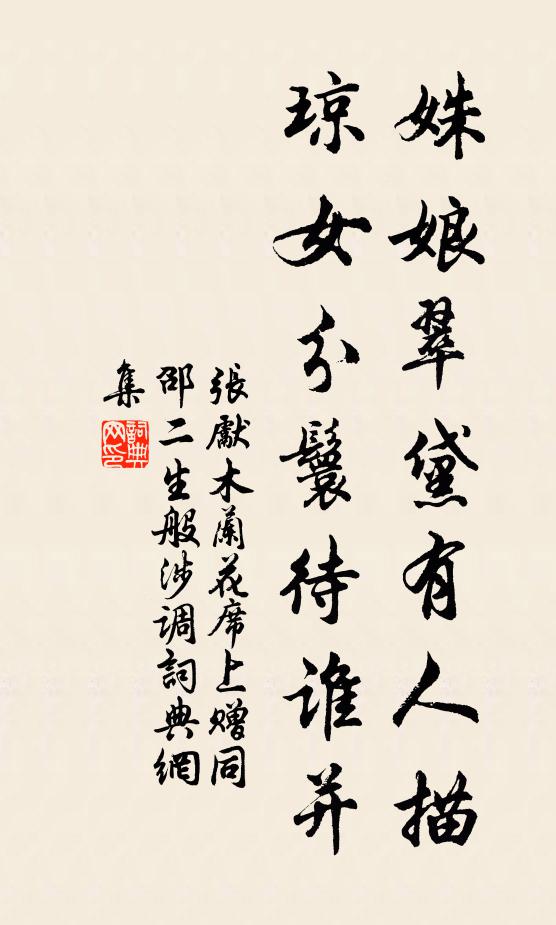 姝娘翠黛有人描
琼女分鬟待谁并
張獻木蘭花席上贈同
邵二生般涉調詞典網
集
詞典
网印